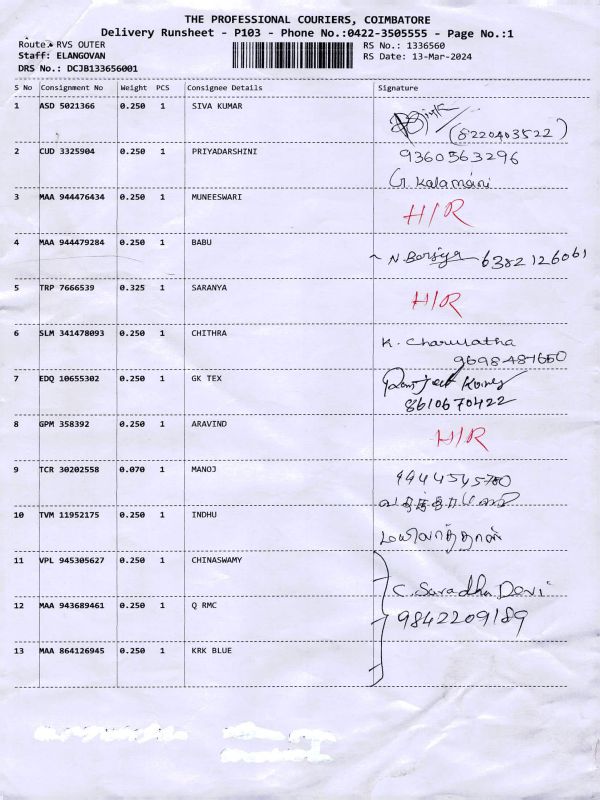 THE PROFESSIONAL COURIERS, COIMBATORE
Delivery Runsheet - P103 - Phone No.:0422-3505555 - Page No.:1
Route: RVS OUTER
RS No.: 1336560
Staff: ELANGOVAN
RS Date: 13-Mar-2024
DRS No.: DCJB133656001
S No Consignment No Weight PCS Consignee Details Signature
1 ASD 5021366 0.250 1 SIVA KUMAR
(8220403522)
2 CUD 3325904 0.250 1 PRIYADARSHINI 9360563296
G. Kalamani
3 MAA 944476434 0.250 1 MUNEESWARI H/R
4 MAA 944479284 0.250 1 BABU N 6382126061
5 TRP 7666539 0.325 1 SARANYA H/R
6 SLM 341478093 0.250 1 CHITHRA K. Charulatha
9698487650
7 EDQ 10655302 0.250 1 GK TEX
8610670422
8 GPM 358392 0.250 1 ARAVIND H/R
9 TCR 30202558 0.070 1 MANOJ 9444545780
10 TVM 11952175 0.250 1 INDHU
11 VPL 945305627 0.250 1 CHINASWAMY C. Saradha Devi
12 MAA 943689461 0.250 1 Q RMC 9842209189
13 MAA 864126945 0.250 1 KRK BLUE